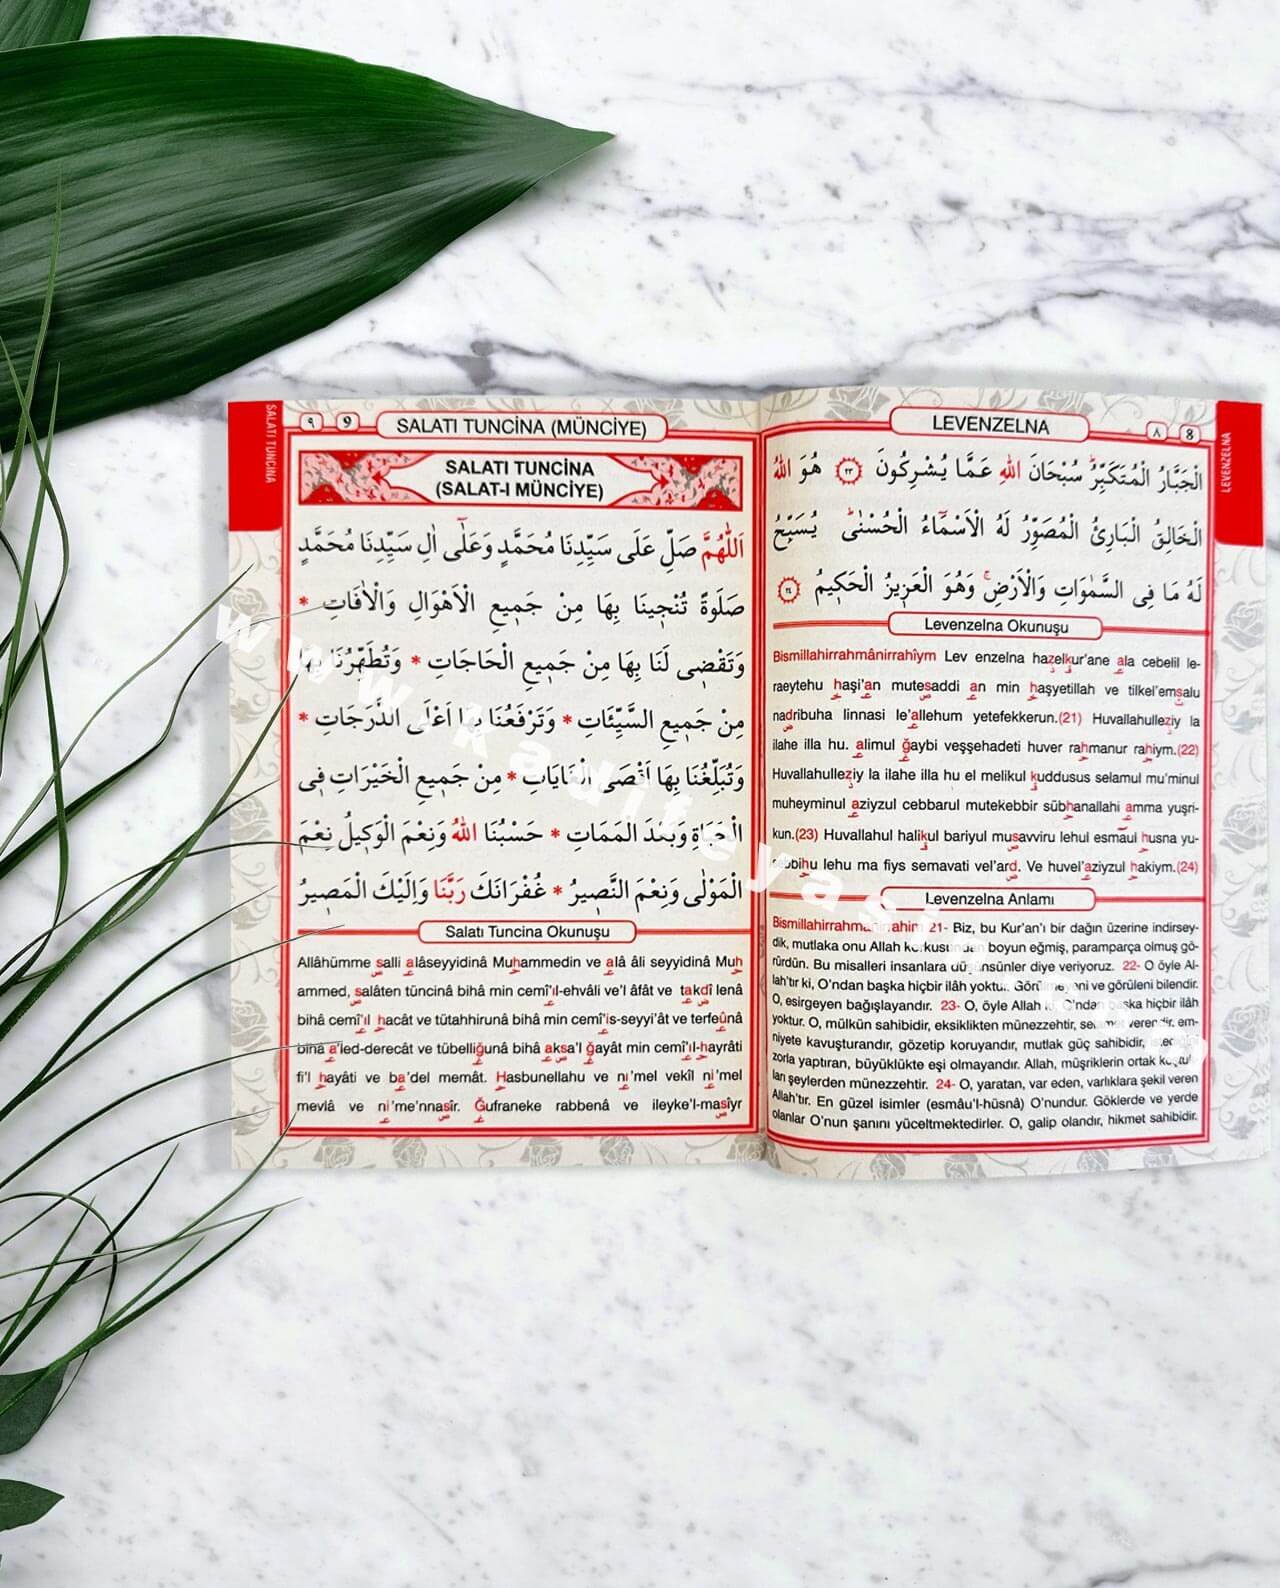 LEVENZELNA
٨ 8
LEVENZELNA
الْجَبَّارُ الْمُتَكَبِّرُۜ سُبْحَانَ اللّٰهِ عَمَّا يُشْرِكُونَ ﴿٢٣﴾ هُوَ اللّٰهُ
الْخَالِقُ الْبَارِئُ الْمُصَوِّرُ لَهُ الْاَسْمَٓاءُ الْحُسْنٰىۜ يُسَبِّحُ
لَهُ مَا فِى السَّمٰوَاتِ وَالْاَرْضِۚ وَهُوَ الْعَزٖيزُ الْحَكٖيمُ ﴿٢٤﴾
Levenzelna Okunuşu
Bismillahirrahmânirrahîym Lev enzelna hazelkur'ane ala cebelil le-
raeytehu haşi'an mutesaddi an min haşyetillah ve tilkel'emsalu
nadribuha linnasi le'allehum yetefekkerun.(21) Huvallahulleziy la
ilahe illa hu. alimul ğaybi veşşehadeti huver rahmanur rahiym.(22)
Huvallahulleziy la ilahe illa hu el melikul kuddusus selamul mu'minul
muheyminul aziyzul cebbarul mutekebbir sübhanallahi amma yuşri-
kun.(23) Huvallahul halikul bariyul musavviru lehul esmâul husna yu-
sebbihu lehu ma fiys semavati vel'ard. Ve huvel'aziyzul hakiym.(24)
Levenzelna Anlamı
Bismillahirrahmanirrahim 21- Biz, bu Kur'an'ı bir dağın üzerine indirsey-
dik, mutlaka onu Allah korkusundan boyun eğmiş, paramparça olmuş gö-
rürdün. Bu misalleri insanlara düşünsünler diye veriyoruz. 22- O öyle Al-
lah'tır ki, O'ndan başka hiçbir ilâh yoktur. Görülmeyeni ve görüleni bilendir.
O, esirgeyen bağışlayandır. 23- O, öyle Allah ki, O'ndan başka hiçbir ilâh
yoktur. O, mülkün sahibidir, eksiklikten münezzehtir, selamet verendir, em-
niyete kavuşturandır, gözetip koruyandır, mutlak güç sahibidir, istediğini
zorla yaptıran, büyüklükte eşi olmayandır. Allah, müşriklerin ortak koştuk-
ları şeylerden münezzehtir. 24- O, yaratan, var eden, varlıklara şekil veren
Allah'tır. En güzel isimler (esmâu'l-hüsnâ) O'nundur. Göklerde ve yerde
olanlar O'nun şanını yüceltmektedirler. O, galip olandır, hikmet sahibidir.
SALATI TUNCİNA
٩ 9
SALATI TUNCİNA (MÜNCİYE)
SALATI TUNCİNA
(SALAT-I MÜNCİYE)
اَللّٰهُمَّ صَلِّ عَلَى سَيِّدِنَا مُحَمَّدٍ وَعَلٰٓى اٰلِ سَيِّدِنَا مُحَمَّدٍ
صَلَوةً تُنْجٖينَا بِهَا مِنْ جَمٖيعِ الْاَهْوَالِ وَالْاٰفَاتِ *
وَتَقْضٖى لَنَا بِهَا مِنْ جَمٖيعِ الْحَاجَاتِ * وَتُطَهِّرُنَا بِهَا
مِنْ جَمٖيعِ السَّيِّئَاتِ * وَتَرْفَعُنَا بِهَا اَعْلَى الدَّرَجَاتِ *
وَتُبَلِّغُنَا بِهَا اَقْصَى الْغَايَاتِ * مِنْ جَمٖيعِ الْخَيْرَاتِ فٖى
الْحَيَاةِ وَبَعْدَ الْمَمَاتِ * حَسْبُنَا اللّٰهُ وَنِعْمَ الْوَكٖيلُ نِعْمَ
الْمَوْلٰى وَنِعْمَ النَّصٖيرُ * غُفْرَانَكَ رَبَّنَا وَاِلَيْكَ الْمَصٖيرُ
Salatı Tuncina Okunuşu
Allâhümme salli alâseyyidinâ Muhammedin ve alâ âli seyyidinâ Muh
ammed, salâten tüncinâ bihâ min cemî'ıl-ehvâli ve'l âfât ve takdî lenâ
bihâ cemî'ıl hacât ve tütahhirunâ bihâ min cemî'is-seyyi'ât ve terfeûnâ
bihâ a'led-derecât ve tübelliğunâ bihâ aksa'l ğayât min cemî'ıl-hayrâti
fi'l hayâti ve ba'del memât. Hasbunellahu ve nı'mel vekîl ni'mel
mevlâ ve ni'me'nnasîr. Ğufraneke rabbenâ ve ileyke'l-masîyr